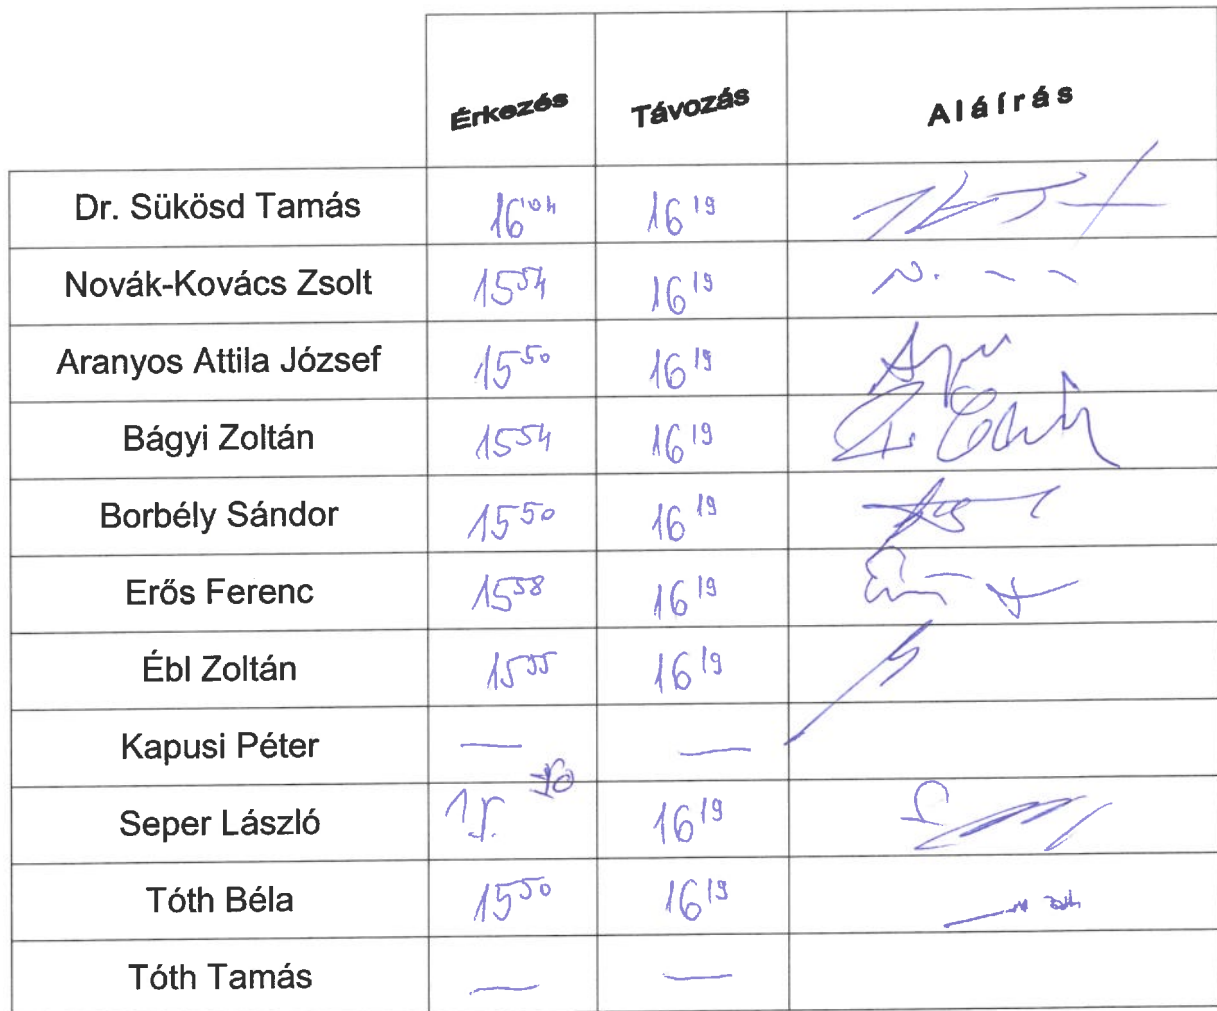 Érkezés Távozás Aláírás
Dr. Sükösd Tamás 16 04 16 19
Novák-Kovács Zsolt 15 54 16 19
Aranyos Attila József 15 50 16 19
Bágyi Zoltán 15 54 16 19
Borbély Sándor 15 50 16 19
Erős Ferenc 15 58 16 19
Ébl Zoltán 15 55 16 19
Kapusi Péter — —
Seper László 15. 50 16 19
Tóth Béla 15 50 16 19
Tóth Tamás — —